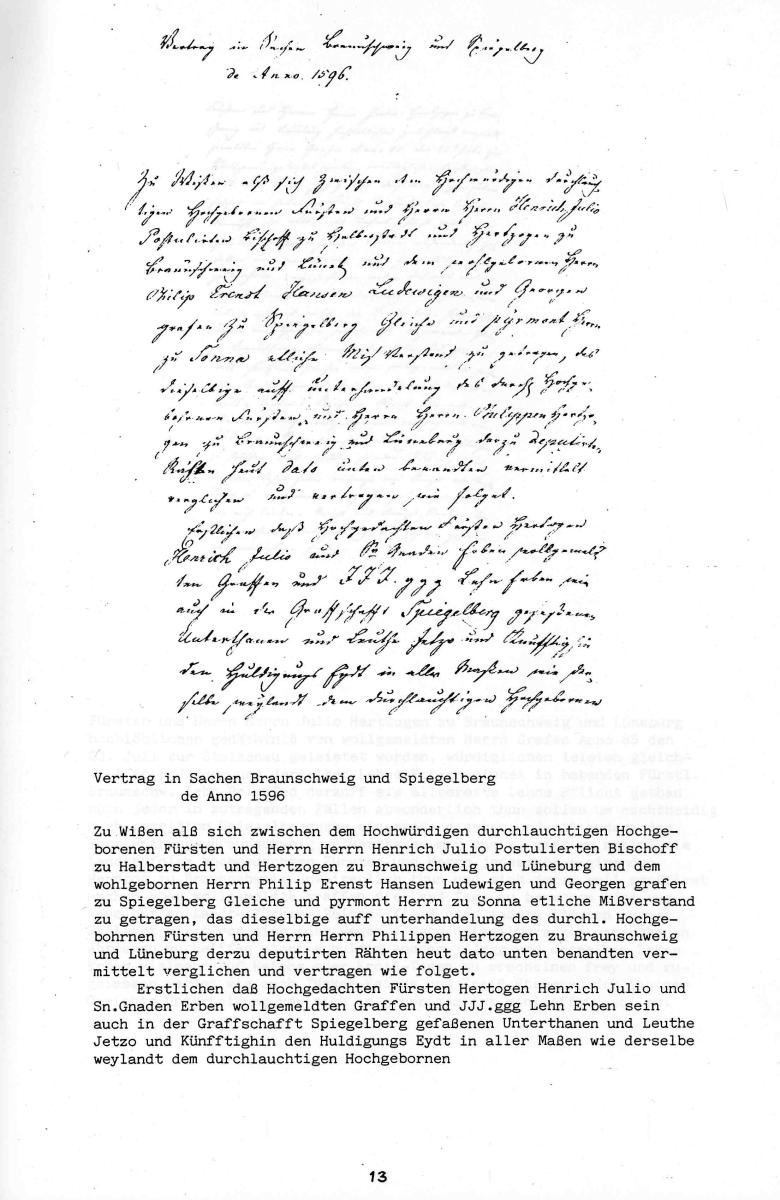 Vertrag in Sachen Braunschweig und Spiegelberg
de Anno. 1596.
Zu Wißen alß sich zwischen dem Hochwürdigen durchlauch
tigen Hochgebornen Fürsten und Herrn Herrn Henrich Julio
Postulirten Bischoff zu Halberstadt und Hertzogen zu
Braunschweig und Lüneb und dem wohlgebornen Herrn
Philip Erenst Hansen Ludewigen und Georgen
grafen zu Spiegelberg Gleiche und pyrmont Herrn
zu Tonna etliche Miß Verstand zu getragen, das
dieselbige auff unterhandelung des durchl Hochge-
bohrnen Fürsten und Herrn Herrn Philippen Hertzo-
gen zu Braunschweig und Lüneburg derzu deputirte
Rähten heut dato unten benandten vermittelt
verglichen und vertragen wie folget.
Erstlichen daß Hochgedachten Fürsten Hertogen
Henrich Julio und Sn Gnaden Erben wollgemel
ten Graffen und JJJ. ggg Lehn Erben
auch in der Graffschafft Spiegelberg geseßenen
Unterthanen und Leuthe Jetzo und Künfftighin
den Huldigungs Eydt in aller Maßen wie der-
selbe weylandt dem durchlauchtigen Hochgebornen
Vertrag in Sachen Braunschweig und Spiegelberg
de Anno 1596
Zu Wißen alß sich zwischen dem Hochwürdigen durchlauchtigen Hochge-
borenen Fürsten und Herrn Herrn Henrich Julio Postulierten Bischoff
zu Halberstadt und Hertzogen zu Braunschweig und Lüneburg und dem
wohlgebornen Herrn Philip Erenst Hansen Ludewigen und Georgen grafen
zu Spiegelberg Gleiche und pyrmont Herrn zu Sonna etliche Mißverstand
zu getragen, das dieselbige auff unterhandelung des durchl. Hochge-
bohrnen Fürsten und Herrn Herrn Philippen Hertzogen zu Braunschweig
und Lüneburg derzu deputirten Rähten heut dato unten benandten ver-
mittelt verglichen und vertragen wie folget.
Erstlichen daß Hochgedachten Fürsten Hertogen Henrich Julio und
Sn.Gnaden Erben wollgemeldten Graffen und JJJ.ggg Lehn Erben sein
auch in der Graffschafft Spiegelberg gefaßenen Unterthanen und Leuthe
Jetzo und Künfftighin den Huldigungs Eydt in aller Maßen wie derselbe
weylandt dem durchlauchtigen Hochgebornen
13